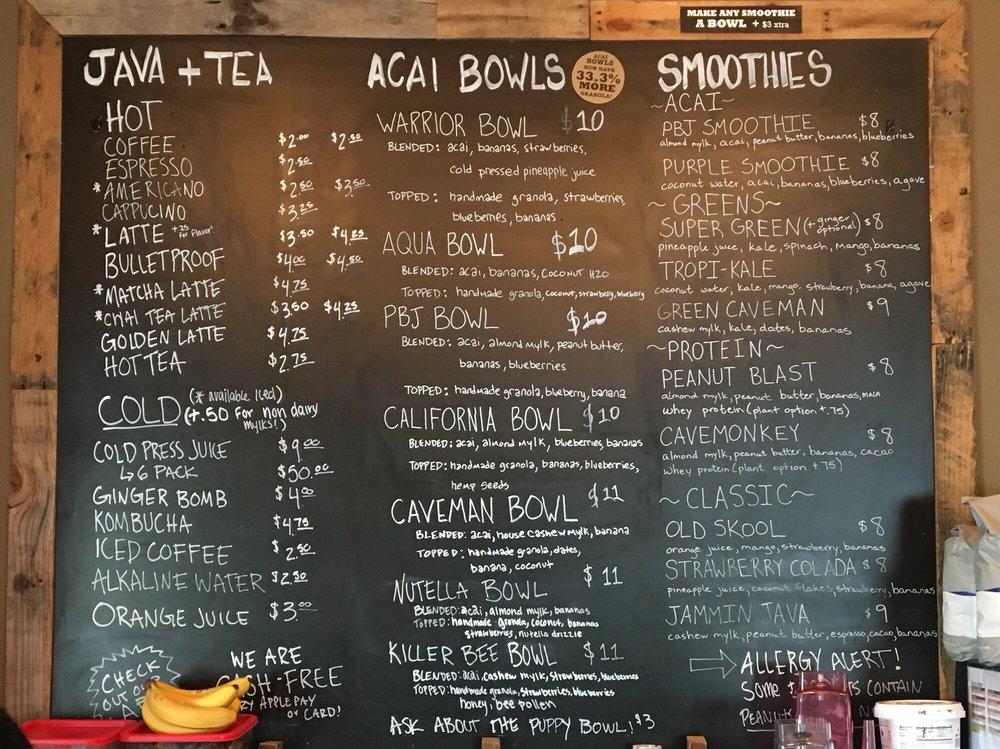 MAKE ANY SMOOTHIE
A BOWL + $3 xtra
JAVA + TEA
HOT
COFFEE $2.00 $2.50
ESPRESSO $2.50
*AMERICANO $2.50 $3.50
CAPPUCINO $3.25
*LATTE +.75 for flavor! $3.50 $4.25
BULLETPROOF $4.00 $4.50
*MATCHA LATTE $4.75
*CHAI TEA LATTE $3.50 $4.25
GOLDEN LATTE $4.75
HOT TEA $2.75
COLD (* available Iced)
(+.50 for non dairy
mylks!)
COLD PRESS JUICE $9.00
↳6 PACK $50.00
GINGER BOMB $4.00
KOMBUCHA $4.75
ICED COFFEE $2.50
ALKALINE WATER $2.50
ORANGE JUICE $3.00
CHECK
OUT
WE ARE
CASH-FREE
APPLE PAY
or CARD!
ACAI BOWLS
ACAI
BOWLS
NOW HAVE
33.3%
MORE
GRANOLA!
WARRIOR BOWL $10
BLENDED: acai, bananas, strawberries,
cold pressed pineapple juice
TOPPED: handmade granola, strawberries
blueberries, bananas
AQUA BOWL $10
BLENDED: acai, bananas, coconut H2O
TOPPED: handmade granola, coconut, strawberry, blueberry
PBJ BOWL $10
BLENDED: acai, almond mylk, peanut butter,
bananas, blueberries
TOPPED: handmade granola, blueberry, banana
CALIFORNIA BOWL $10
BLENDED: acai, almond mylk, blueberries, bananas
TOPPED: handmade granola, bananas, blueberries,
hemp seeds
CAVEMAN BOWL $11
BLENDED: acai, house cashew mylk, banana
TOPPED: handmade granola, dates,
banana, coconut
NUTELLA BOWL $11
BLENDED: acai, almond mylk, bananas
TOPPED: handmade granola, coconut, bananas
strawberries, nutella drizzle
KILLER BEE BOWL $11
BLENDED: acai, cashew mylk, strawberries, blueberries
TOPPED: handmade granola, strawberries, blueberries
honey, bee pollen
ASK ABOUT THE PUPPY BOWL! $3
SMOOTHIES
~ACAI~
PBJ SMOOTHIE $8
almond mylk, acai, peanut butter, bananas, blueberries
PURPLE SMOOTHIE $8
coconut water, acai, bananas, blueberries, agave
~GREENS~
SUPER GREEN (+ginger optional) $8
pineapple juice, kale, spinach, mango, bananas
TROPI-KALE $8
coconut water, kale, mango, strawberry, banana, agave
GREEN CAVEMAN $9
cashew mylk, kale, dates, bananas
~PROTEIN~
PEANUT BLAST $8
almond mylk, peanut butter, bananas, maca
whey protein (plant option +.75)
CAVEMONKEY $8
almond mylk, peanut butter, bananas, cacao
whey protein (plant option +.75)
~CLASSIC~
OLD SKOOL $8
orange juice, mango, strawberry, bananas
STRAWBERRY COLADA $8
pineapple juice, coconut flakes, strawberry, bananas
JAMMIN JAVA $9
cashew mylk, peanut butter, espresso, cacao, bananas
ALLERGY ALERT!
Some CONTAIN